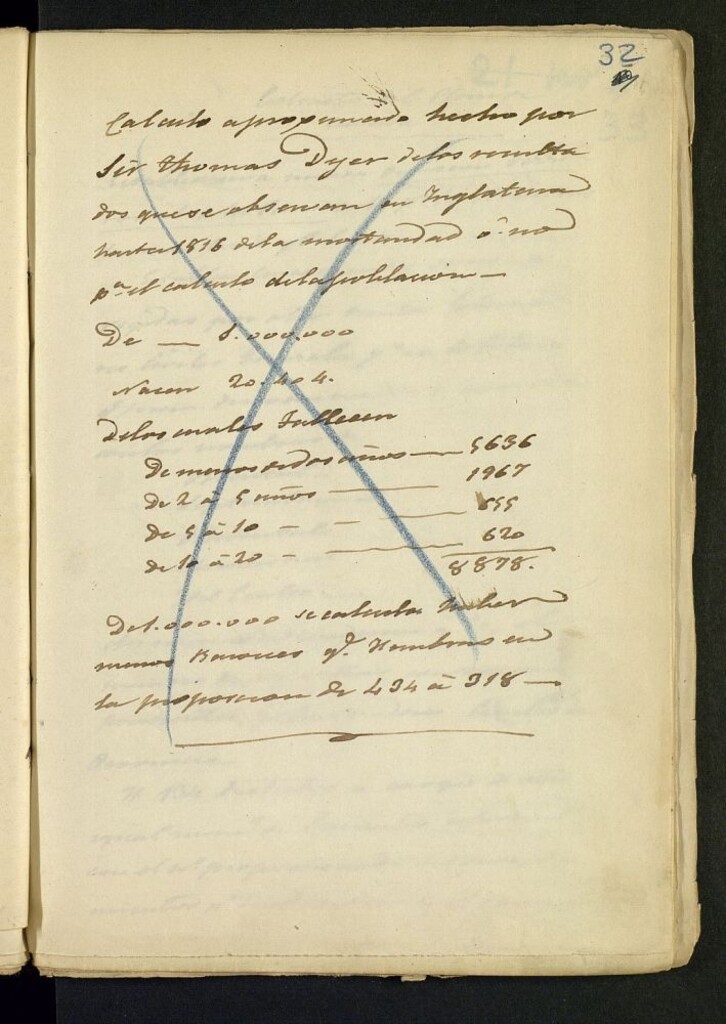 32
Calculo aproximado hecho por
Sir Thomas Dyer delos resulta
dos que se observan en Inglaterra
hasta 1816 dela mortandad ó no
pª el calculo dela poblacion —
De — 1.000.000
Nacen 20.404.
Delos cuales fallecen
De menos de dos años — 5636
de 2 à 5 años — 1967
de 5 à 10 — — 655
de 10 à 20 — — 620
8878.
De 1.000.000 se calcula haber
menos Varones qe. Hembras en
la proporcion de 434 à 318 —